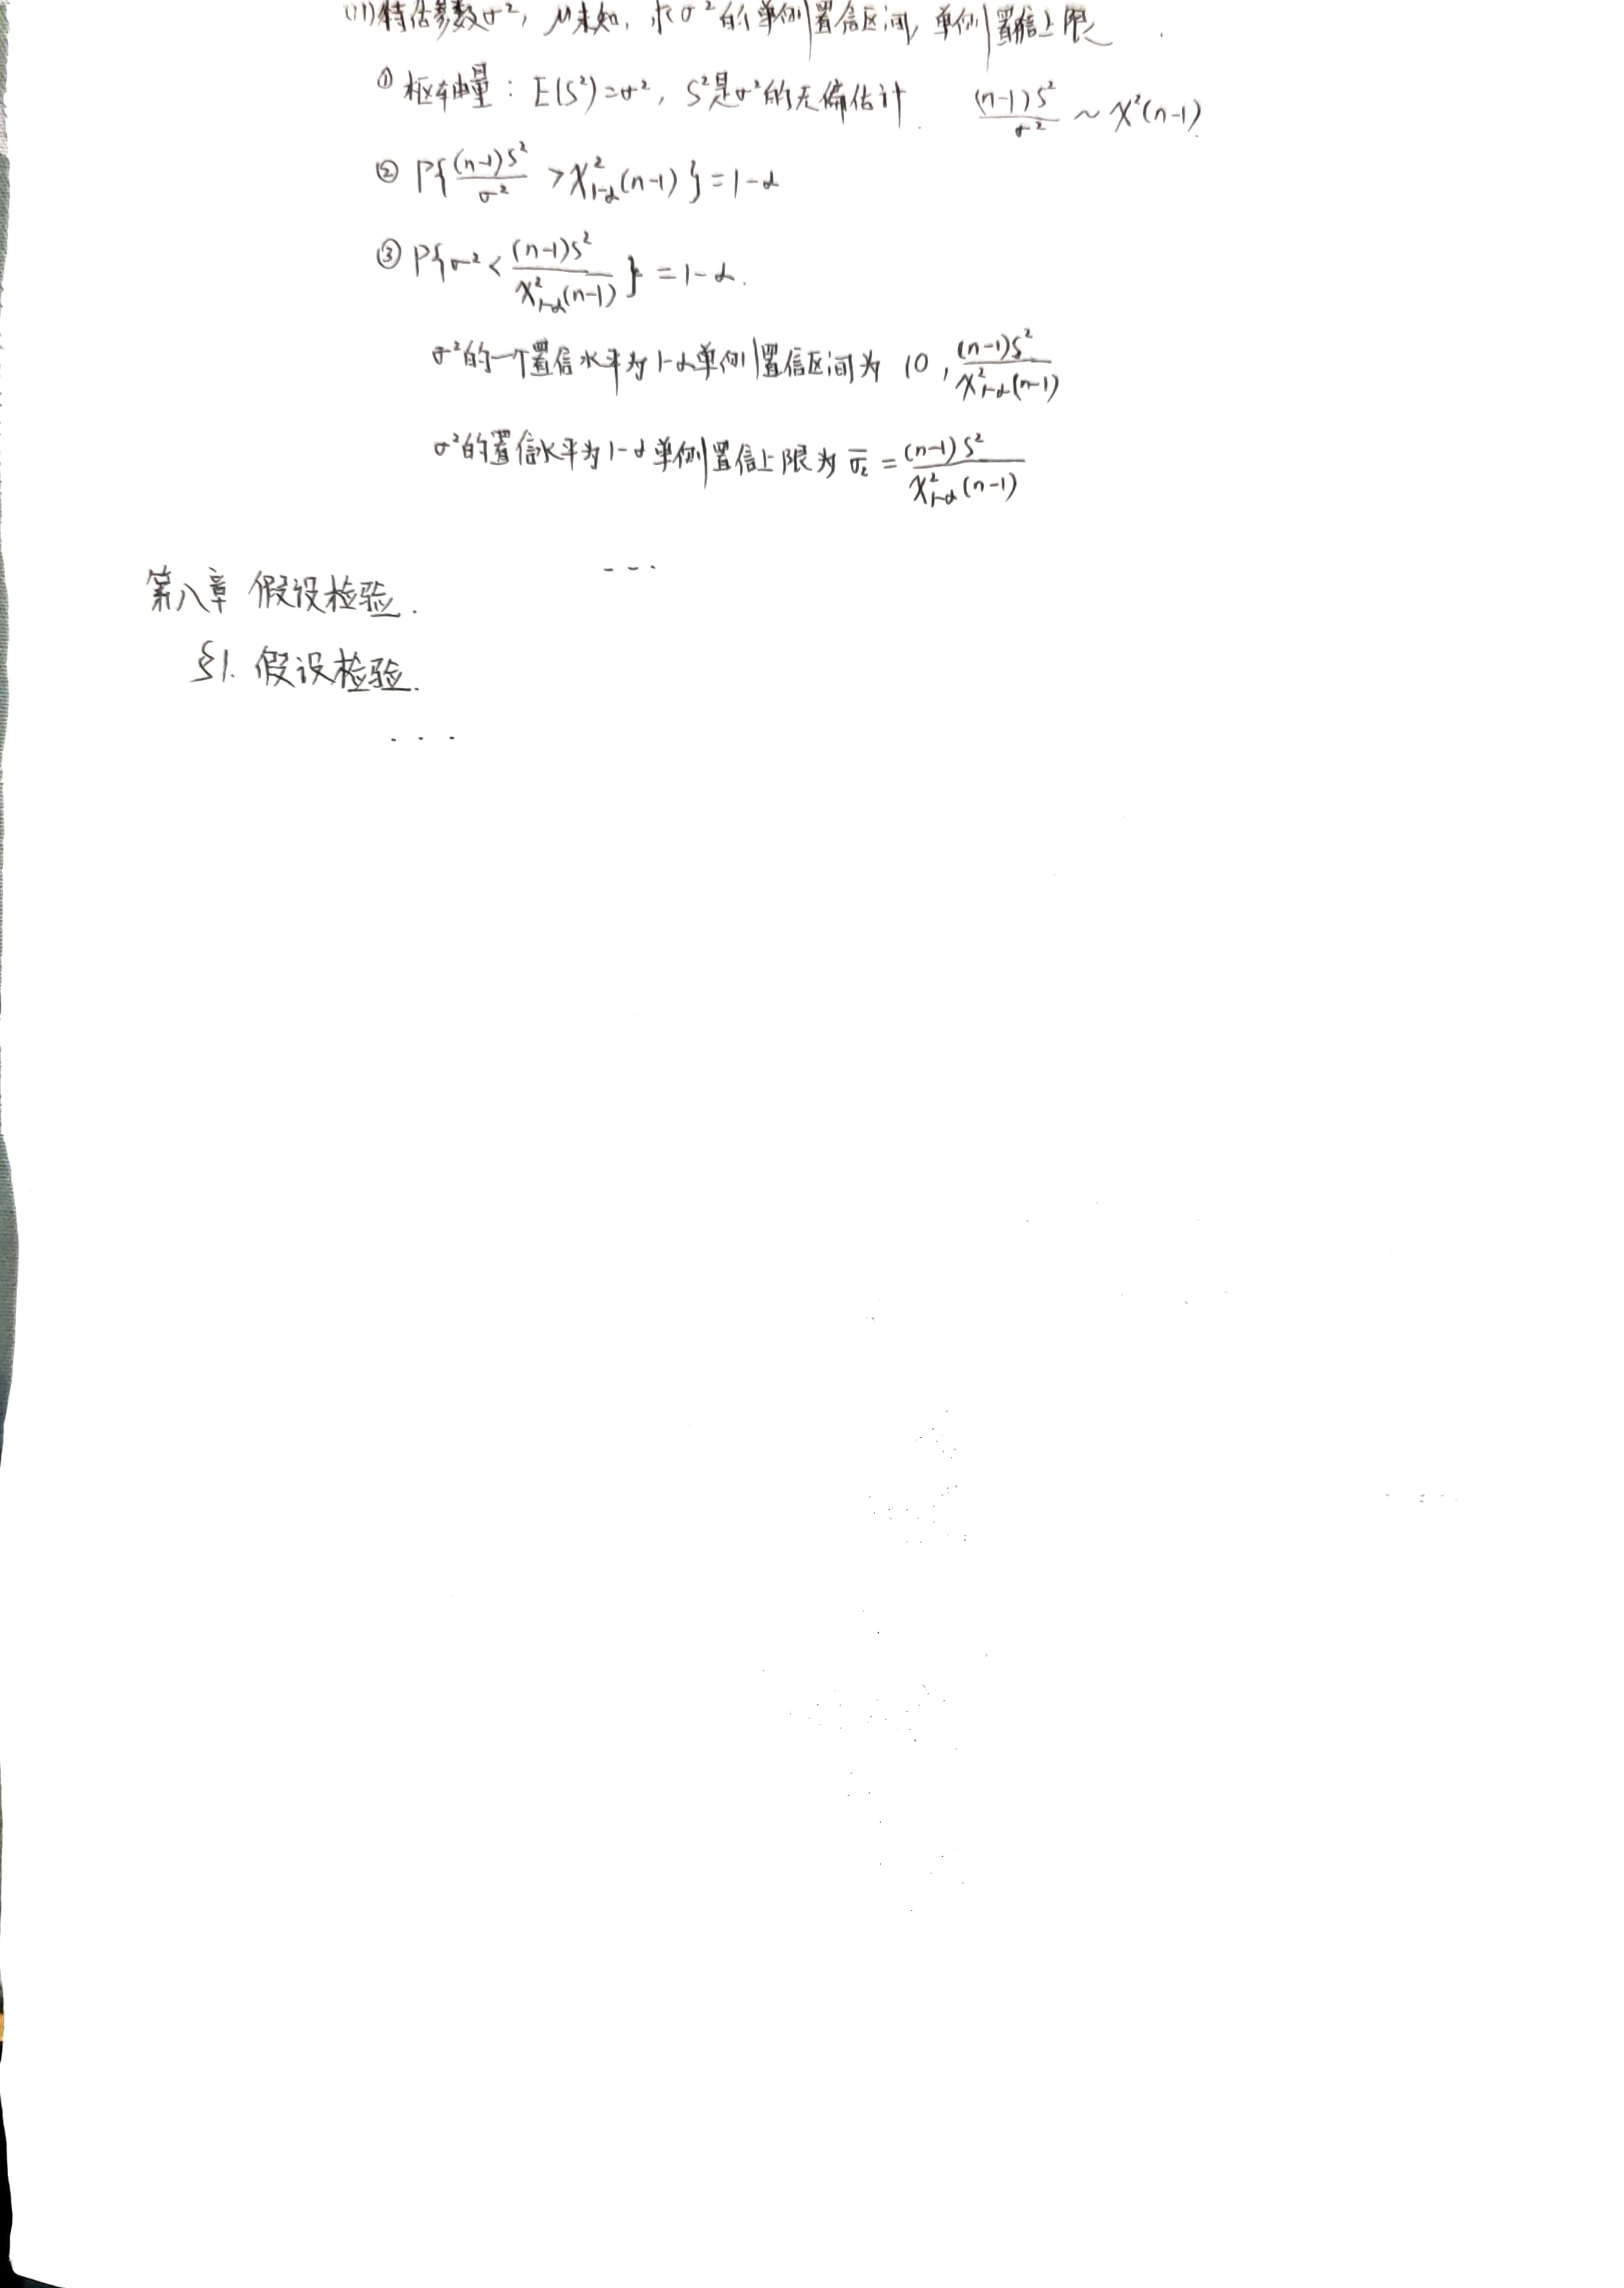 (11)待估参数σ², μ未知, 求σ²的单侧置信区间, 单侧置信上限
① 枢轴量: E(S²)=σ², S²是σ²的无偏估计. (n-1)S²/σ² ~ χ²(n-1).
② P{(n-1)S²/σ² > χ²₁₋α(n-1)} = 1-α
③ P{σ² < (n-1)S²/χ²₁₋α(n-1)} = 1-α.
σ²的一个置信水平为1-α单侧置信区间为 (0, (n-1)S²/χ²₁₋α(n-1)
σ²的置信水平为1-α单侧置信上限为 σ̄₂ = (n-1)S²/χ²₁₋α(n-1)
---
第八章 假设检验.
§1. 假设检验.
...